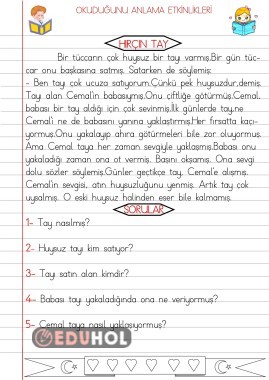 OKUDUĞUNU ANLAMA ETKİNLİKLERİ
HIRÇIN TAY
Bir tüccarın çok huysuz bir tay varmış.Bir gün tüc-
car onu başkasına satmış. Satarken de söylemiş:
- Ben tayı çok ucuza satıyorum.Çünkü pek huysuzdur,demiş.
Tayı alan Cemal'in babasıymış.Onu çiftliğe götürmüş.Cemal,
babası bir tay aldığı için çok sevinmiş.İlk günlerde tay,ne
Cemal'i ne de babasını yanına yaklaştırmış.Her fırsatta kaçı-
yormuş.Onu yakalayıp ahıra götürmeleri bile zor oluyormuş.
Ama Cemal taya her zaman sevgiyle yaklaşmış.Babası onu
yakaladığı zaman ona ot vermiş. Başını okşamış. Ona sevgi
dolu sözler söylemiş.Günler geçtikçe tay, Cemal'e alışmış.
Cemal'in sevgisi, atın huysuzluğunu yenmiş. Artık tay çok
uysalmış. O eski huysuz halinden eser bile kalmamış.
SORULAR
1- Tay nasılmış?
2- Huysuz tayı kim satıyor?
3- Tayı satın alan kimdir?
4- Babası tayı yakaladığında ona ne veriyormuş?
5- Cemal taya nasıl yaklaşıyormuş?
EDUHOL